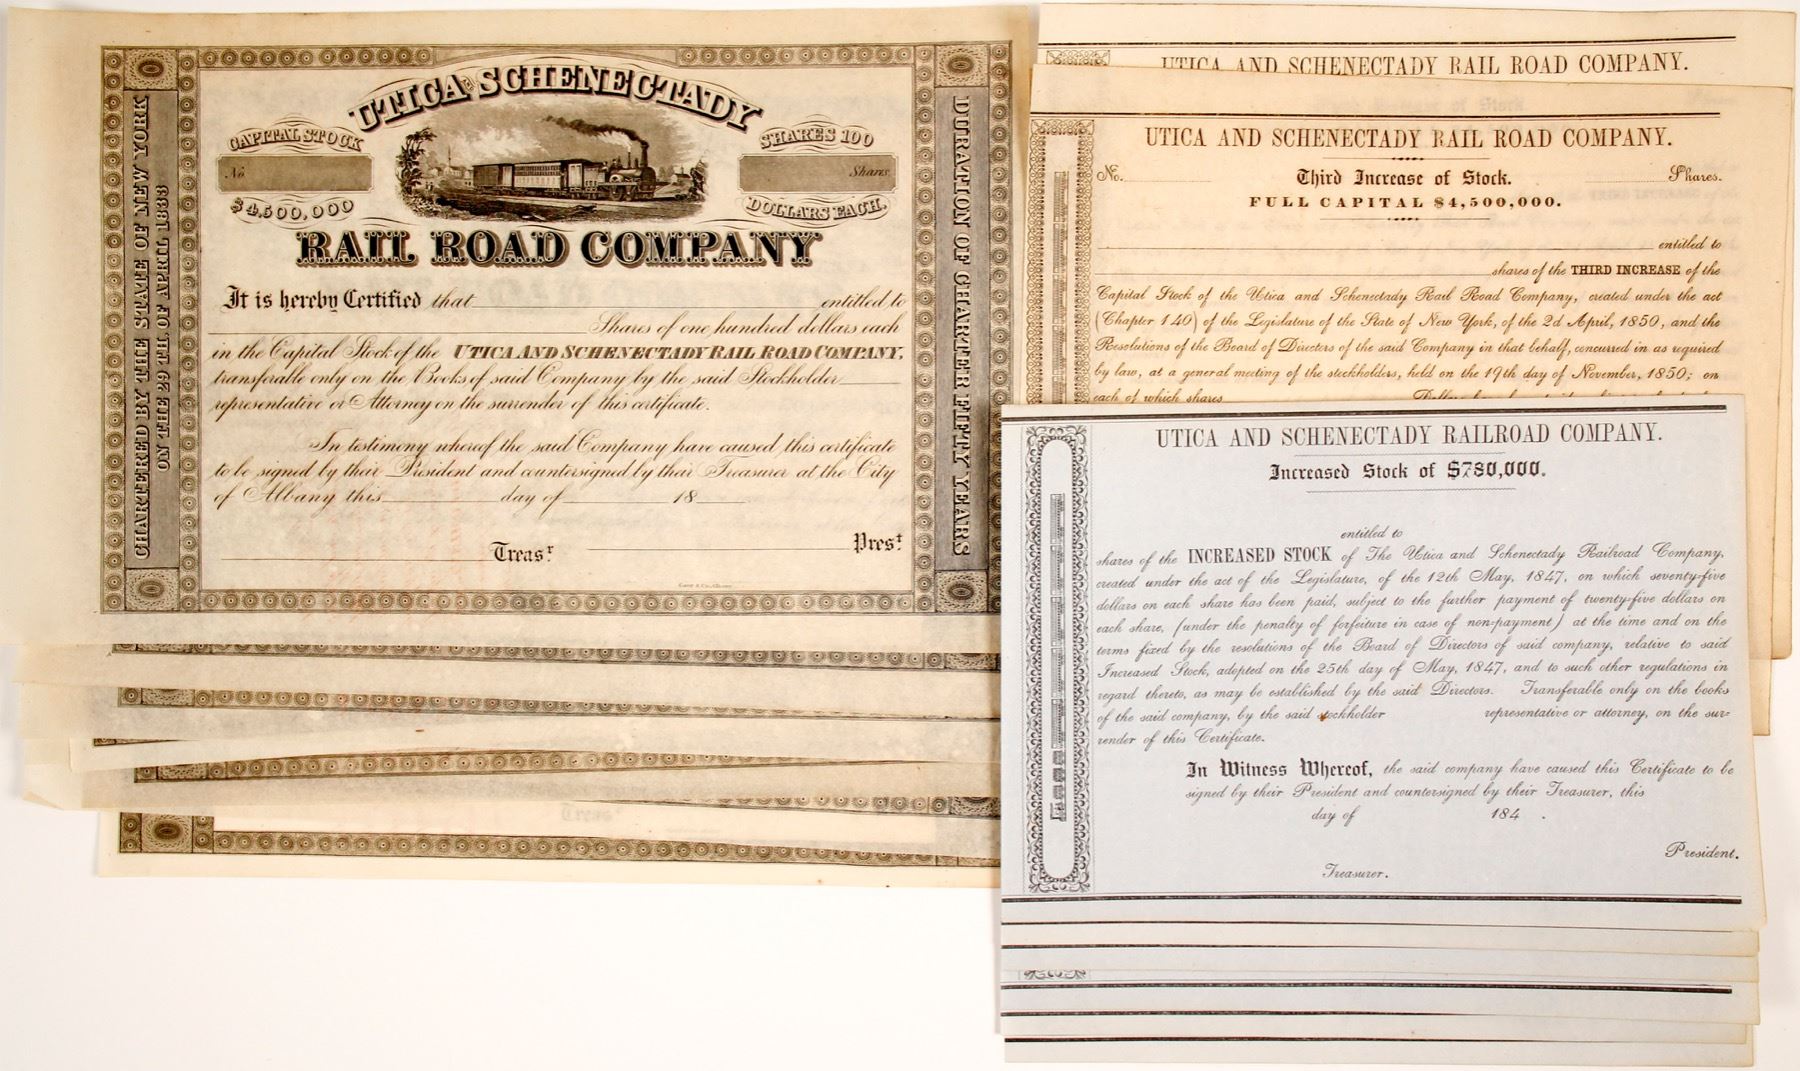 UTICA AND SCHENECTADY
CAPITAL STOCK
No
$4,500,000
SHARES 100
Shares
DOLLARS EACH.
RAIL ROAD COMPANY
CHARTERED BY THE STATE OF NEW YORK
ON THE 29TH OF APRIL 1833
DURATION OF CHARTER FIFTY YEARS
It is hereby Certified that entitled to
Shares of one hundred dollars each
in the Capital Stock of the UTICA AND SCHENECTADY RAIL ROAD COMPANY,
transferable only on the Books of said Company by the said Stockholder
representative or Attorney on the surrender of this certificate.
In testimony whereof the said Company have caused this certificate
to be signed by their President and countersigned by their Treasurer at the City
of Albany this day of 18
Treasr
Prest
UTICA AND SCHENECTADY RAIL ROAD COMPANY.
UTICA AND SCHENECTADY RAIL ROAD COMPANY.
No. Third Increase of Stock. Shares.
FULL CAPITAL $4,500,000.
entitled to
shares of the THIRD INCREASE of the
Capital Stock of the Utica and Schenectady Rail Road Company, created under the act
(Chapter 140) of the Legislature of the State of New York, of the 2d April, 1850, and the
Resolutions of the Board of Directors of the said Company in that behalf, concurred in as required
by law, at a general meeting of the stockholders, held on the 19th day of November, 1850; on
each of which shares
UTICA AND SCHENECTADY RAILROAD COMPANY.
Increased Stock of $780,000.
entitled to
shares of the INCREASED STOCK of The Utica and Schenectady Railroad Company,
created under the act of the Legislature, of the 12th May, 1847, on which seventy-five
dollars on each share has been paid, subject to the further payment of twenty-five dollars on
each share, (under the penalty of forfeiture in case of non-payment) at the time and on the
terms fixed by the resolutions of the Board of Directors of said company, relative to said
Increased Stock, adopted on the 25th day of May, 1847, and to such other regulations in
regard thereto, as may be established by the said Directors. Transferable only on the books
of the said company, by the said stockholder representative or attorney, on the sur-
render of this Certificate.
In Witness Whereof, the said company have caused this Certificate to be
signed by their President and countersigned by their Treasurer, this
day of 184 .
President.
Treasurer.